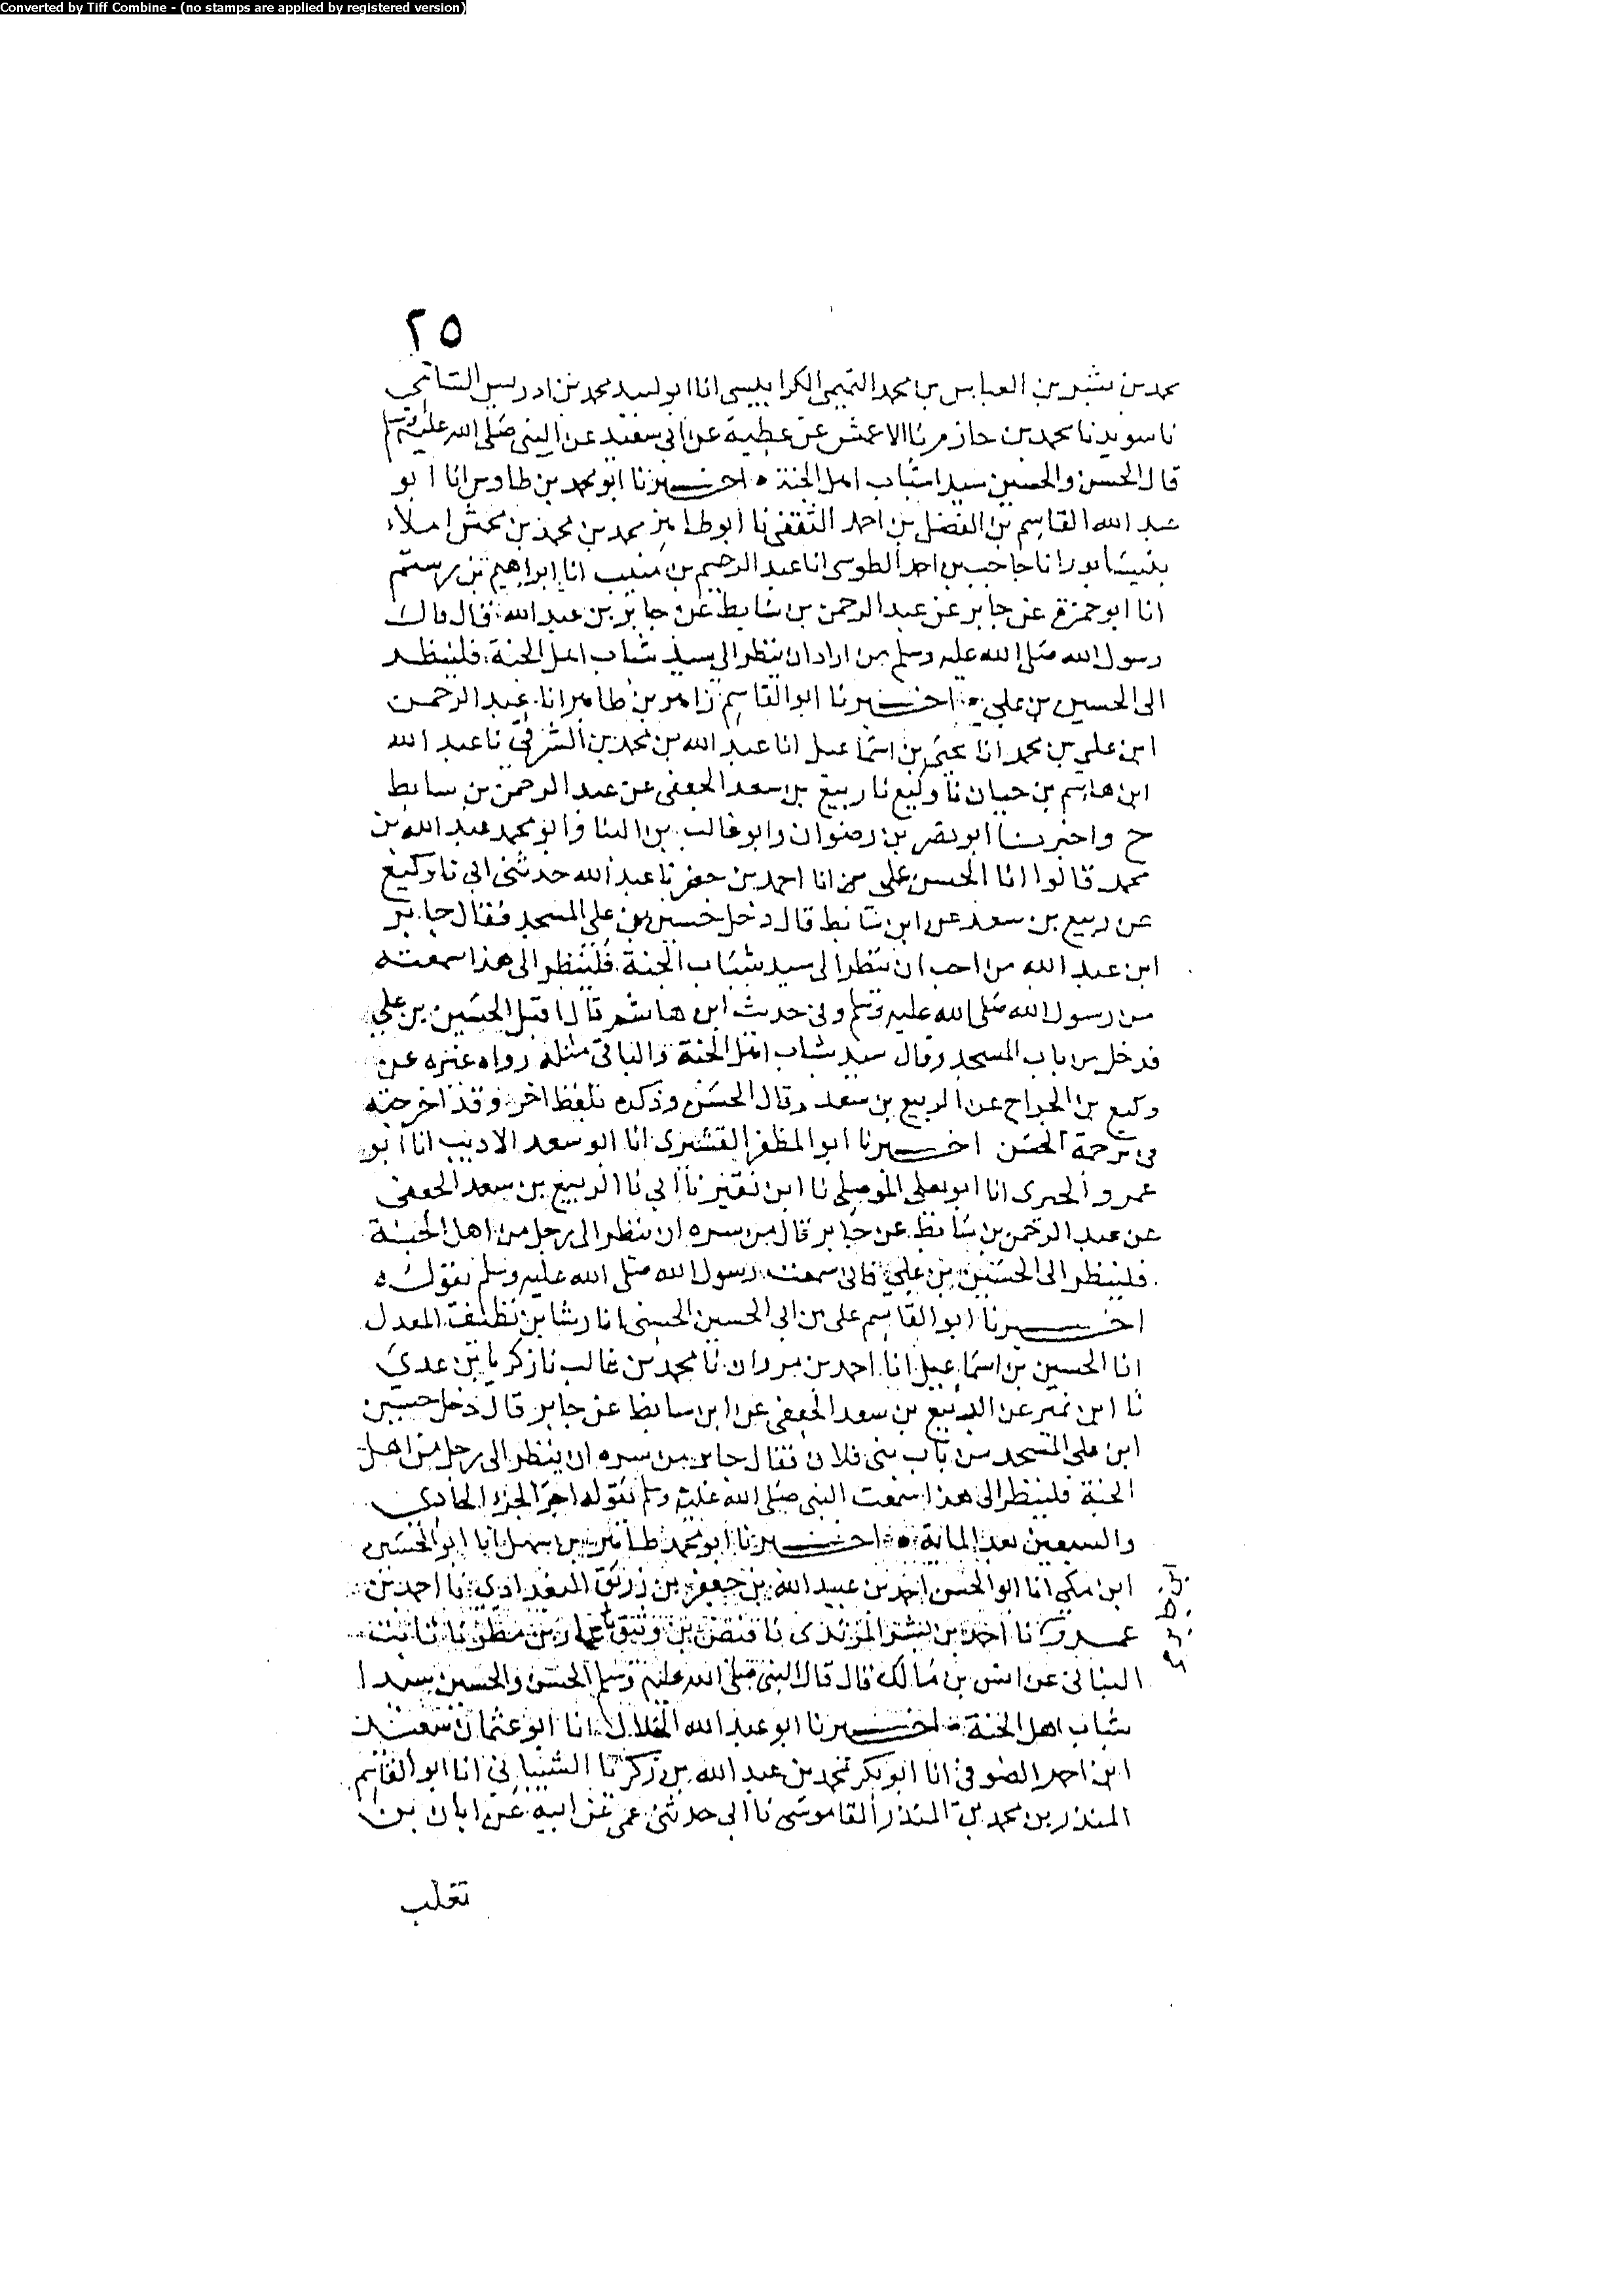 Converted by Tiff Combine - (no stamps are applied by registered version)
٢٥
محمد بن بشر بن العباس بن محمد التميمي الكرابيسي انا ابو لبيد محمد بن ادريس الشامي
نا سويد نا محمد بن حازم نا الاعمش عن عطية عن ابي سعيد عن النبي صلى الله عليه وسلم
قال الحسن والحسين سيدا شباب اهل الجنة ه اخبرنا ابو محمد بن طاوس انا ابو
عبد الله القاسم بن الفضل بن احمد الثقفي نا ابو طاهر محمد بن محمد بن محمش املاء
بنيسابور انا حاجب بن احمد الطوسي انا عبد الرحيم بن منيب انا ابراهيم بن رستم
انا ابو حمزة عن جابر عن عبد الرحمن بن سابط عن جابر بن عبد الله قال قال
رسول الله صلى الله عليه وسلم من اراد ان ينظر الى سيد شباب اهل الجنة فلينظر
الى الحسين بن علي ه اخبرنا ابو القاسم زاهر بن طاهر انا عبد الرحمن
ابن علي بن محمد انا يحيى بن اسماعيل انا عبد الله بن محمد بن الشرقي نا عبد الله
ابن هاشم بن حيان نا وكيع نا ربيع بن سعد الجعفي عن عبد الرحمن بن سابط
ح واخبرنا ابو نصر بن رضوان وابو غالب بن البنا وابو محمد عبد الله بن
محمد قالوا انا الحسن علي انا احمد بن جعفر نا عبد الله حدثني ابي نا وكيع
عن ربيع بن سعد عن ابن سابط قال دخل حسين بن علي المسجد فقال جابر
ابن عبد الله من احب ان ينظر الى سيد شباب الجنة فلينظر الى هذا سمعته
من رسول الله صلى الله عليه وسلم وفي حديث ابن هاشم قال اقبل الحسين بن علي
فدخل من باب المسجد وقال سيد شباب اهل الجنة والباقي مثله رواه غيره عن
وكيع بن الجراح عن الربيع بن سعد وقال الحسن وذكره بلفظ اخر وقد اخرجته
في ترجمة الحسن اخبرنا ابو المظفر القشيري انا ابو سعد الاديب انا ابو
عمرو الحيري انا ابو يعلى الموصلي نا ابن نمير نا ابي نا الربيع بن سعد الجعفي
عن عبد الرحمن بن سابط عن جابر قال من سره ان ينظر الى رجل من اهل الجنة
فلينظر الى الحسين بن علي فاني سمعت رسول الله صلى الله عليه وسلم يقوله
اخبرنا ابو القاسم علي بن ابي الحسين الحسيني انا رشا بن نظيف المعدل
انا الحسين بن اسماعيل انا احمد بن مروان نا محمد بن غالب نا زكريا بن عدي
نا ابن نمير عن الربيع بن سعد الجعفي عن ابن سابط عن جابر قال دخل حسين
ابن علي المسجد من باب بني فلان فقال جابر من سره ان ينظر الى رجل من اهل
الجنة فلينظر الى هذا سمعت النبي صلى الله عليه وسلم يقوله اخر الجزء الحادي
والسبعين بعد الماية ه اخبرنا ابو محمد طاهر بن سهل انا ابو الحسين
ابن مكي انا ابو الحسن احمد بن عبيد الله بن جعفر بن زريق البغدادي نا احمد بن
عمرو نا احمد بن بشر المرثدي نا فيض بن وثيق نا بن مطر نا ثابت
البناني عن انس بن مالك قال قال النبي صلى الله عليه وسلم الحسن والحسين سيدا
شباب اهل الجنة ه اخبرنا ابو عبد الله الخلال انا ابو عثمان سعيد
ابن احمد الصوفي انا ابو بكر محمد بن عبد الله بن زكريا الشيباني انا ابو القاسم
المنذر بن محمد بن المنذر القاموسي نا ابي حدثني عمي عن ابيه عن ابان بن
تغلب